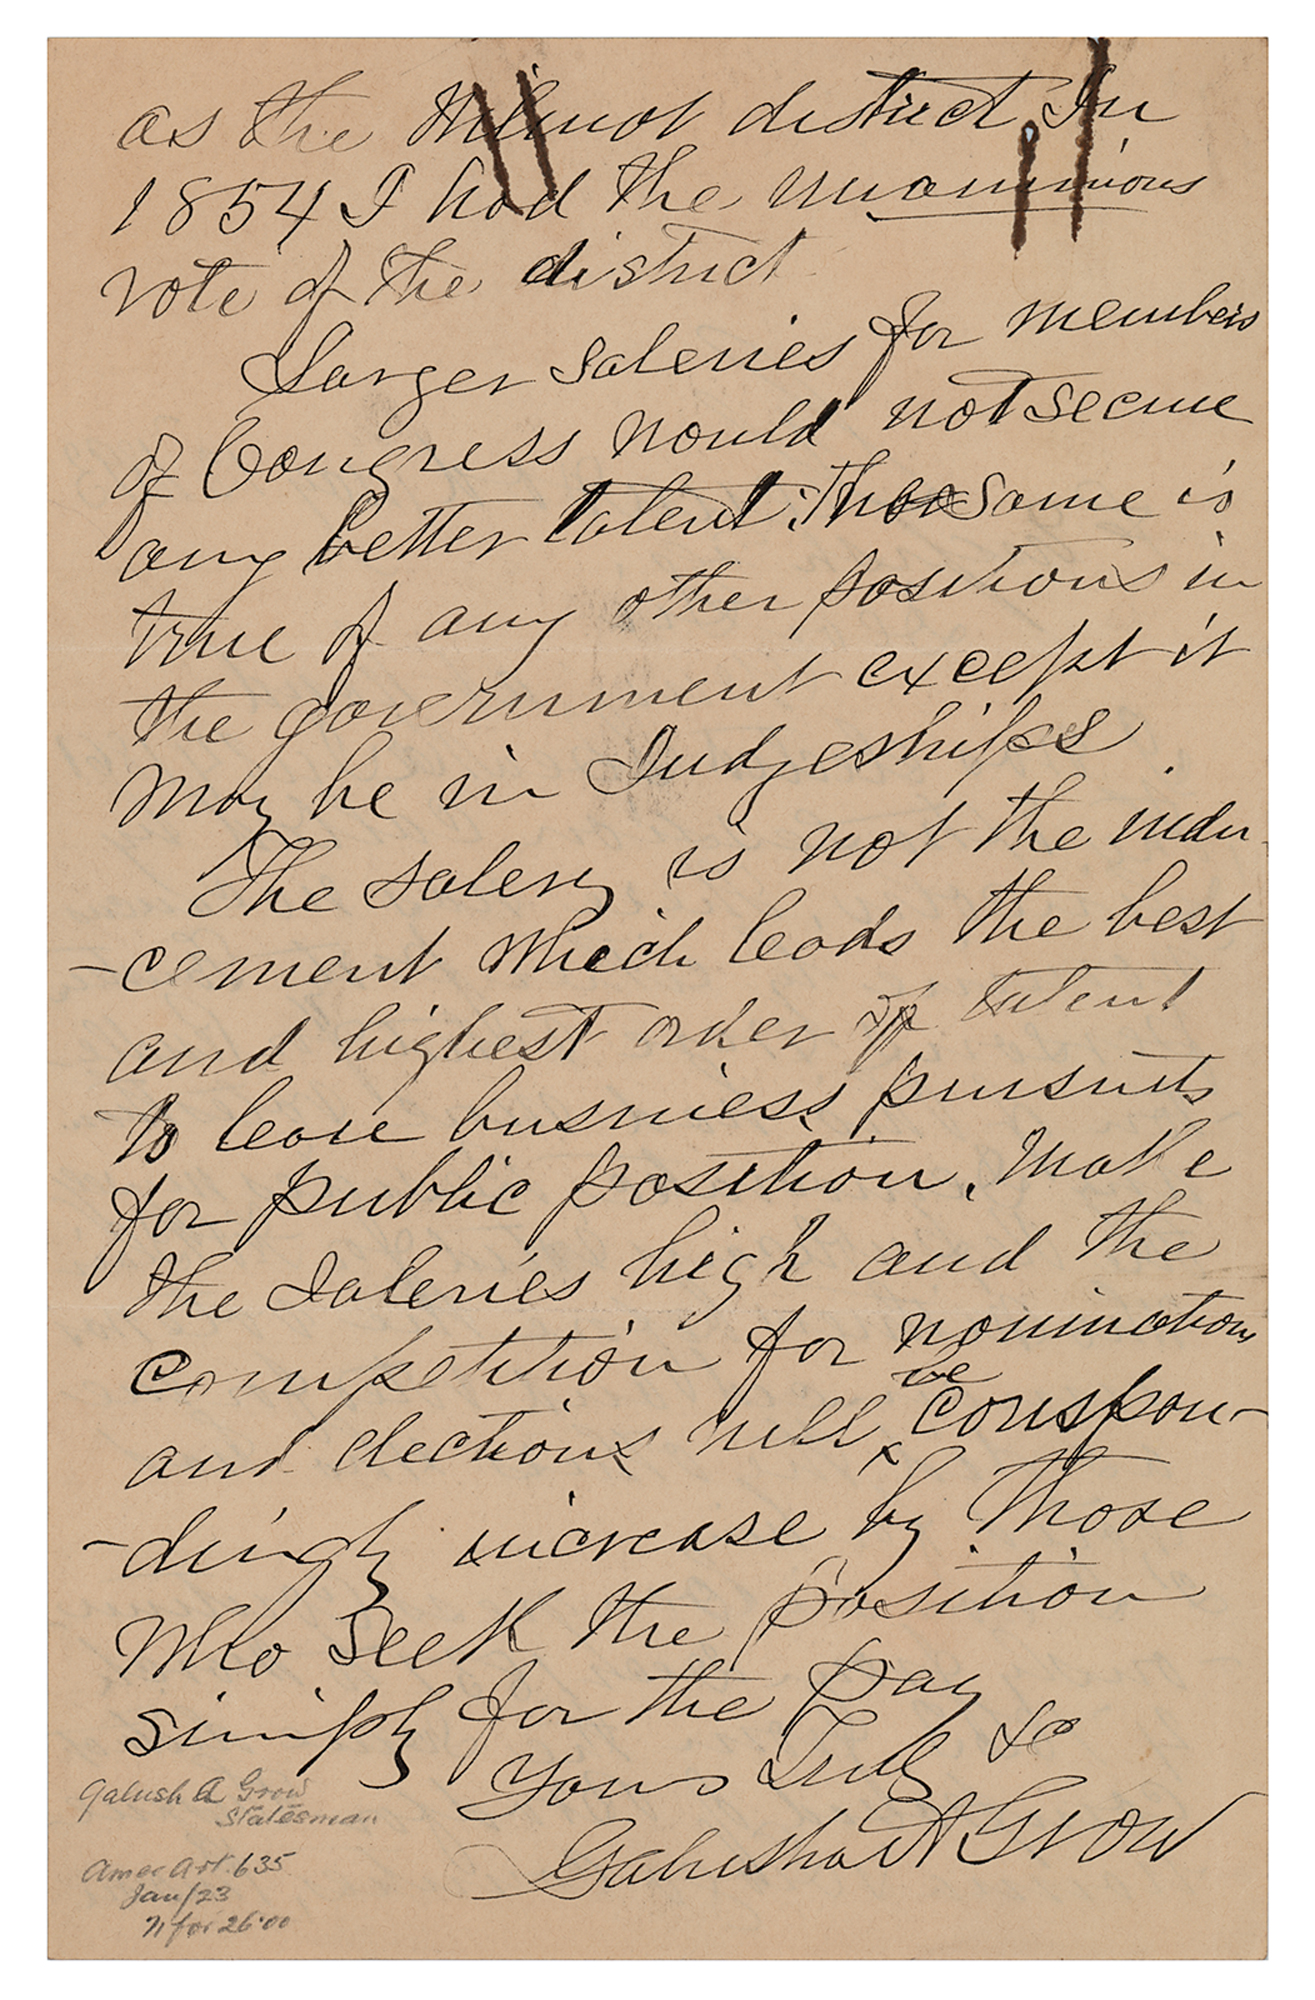 as the Wilmot district. In
1854 I had the unanimous
vote of the district
Larger saleries for members
of Congress would not secure
any better talent. The same is
true of any other positions in
the government except it
may be in Judgeships.
The salery is not the indu-
-cement which leads the best
and highest order of talent
to leave business pursuits
for public position. Make
the saleries high and the
competition for nominations
be
and elections will ^ correspon-
-dingly increase by those
who seek the position
simply for the pay
Yours Truly &c
Galusha A Grow
Galush A Grow
Statesman
Amer Art. 635
Jan/23
71 for 26.00